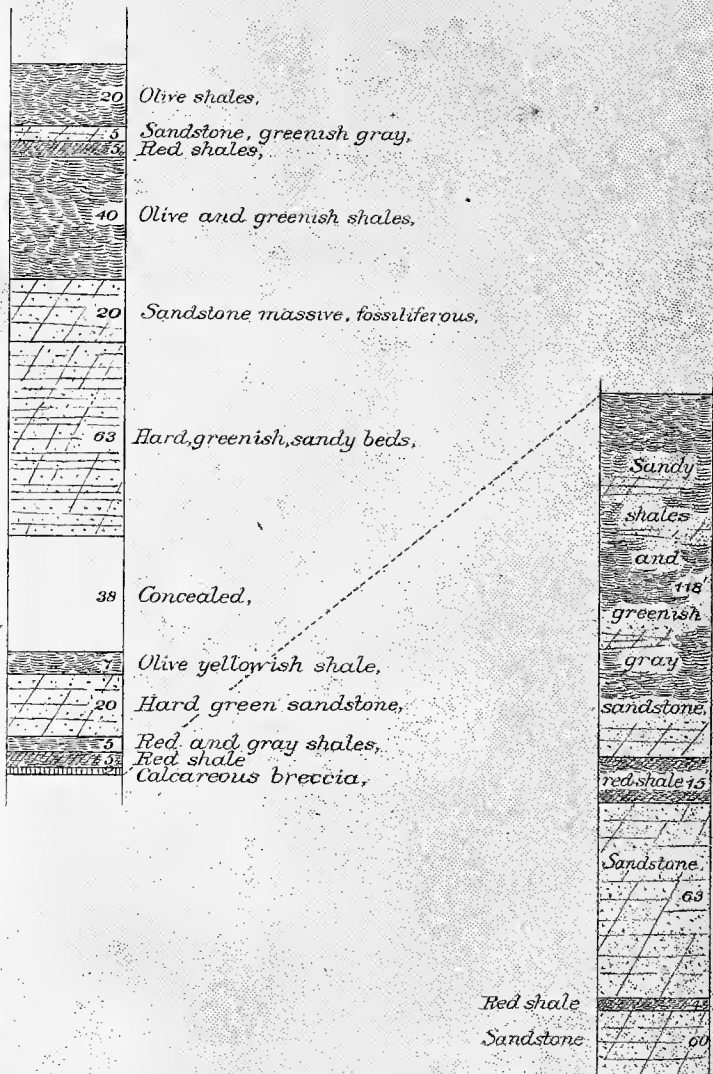 20 Olive shales,
5 Sandstone, greenish gray,
5 Red shales,
40 Olive and greenish shales,
20 Sandstone massive, fossiliferous,
63 Hard, greenish, sandy beds,
38 Concealed,
7 Olive yellowish shale,
20 Hard green sandstone,
5 Red and gray shales,
5 Red shale
2 Calcareous breccia,
Sandy
shales
and
118'
greenish
gray
sandstone,
red shale 15
Sandstone,
63
Red shale
Sandstone 60